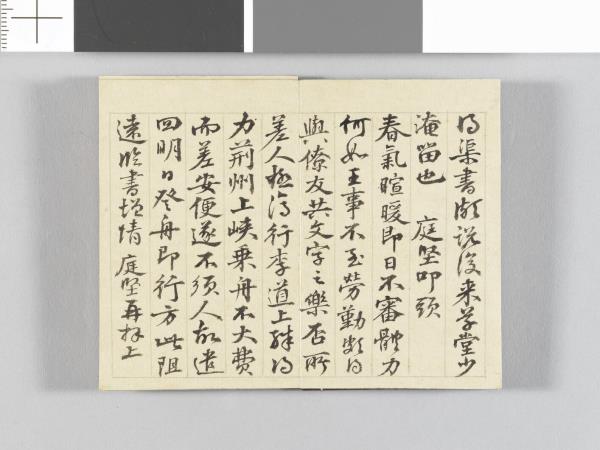 得渠書頗説後来草堂少
淹留也　庭堅叩頭
春氣暄暖即日不審體力
何如王事不至勞勤頗得
與僚友共文字之樂否所
差人極得行李道上殊得
力荊州上峽乗舟不大費
而差安便遂不須人故遣
回明日登舟即行方此阻
遠臨書増情庭堅再拜上